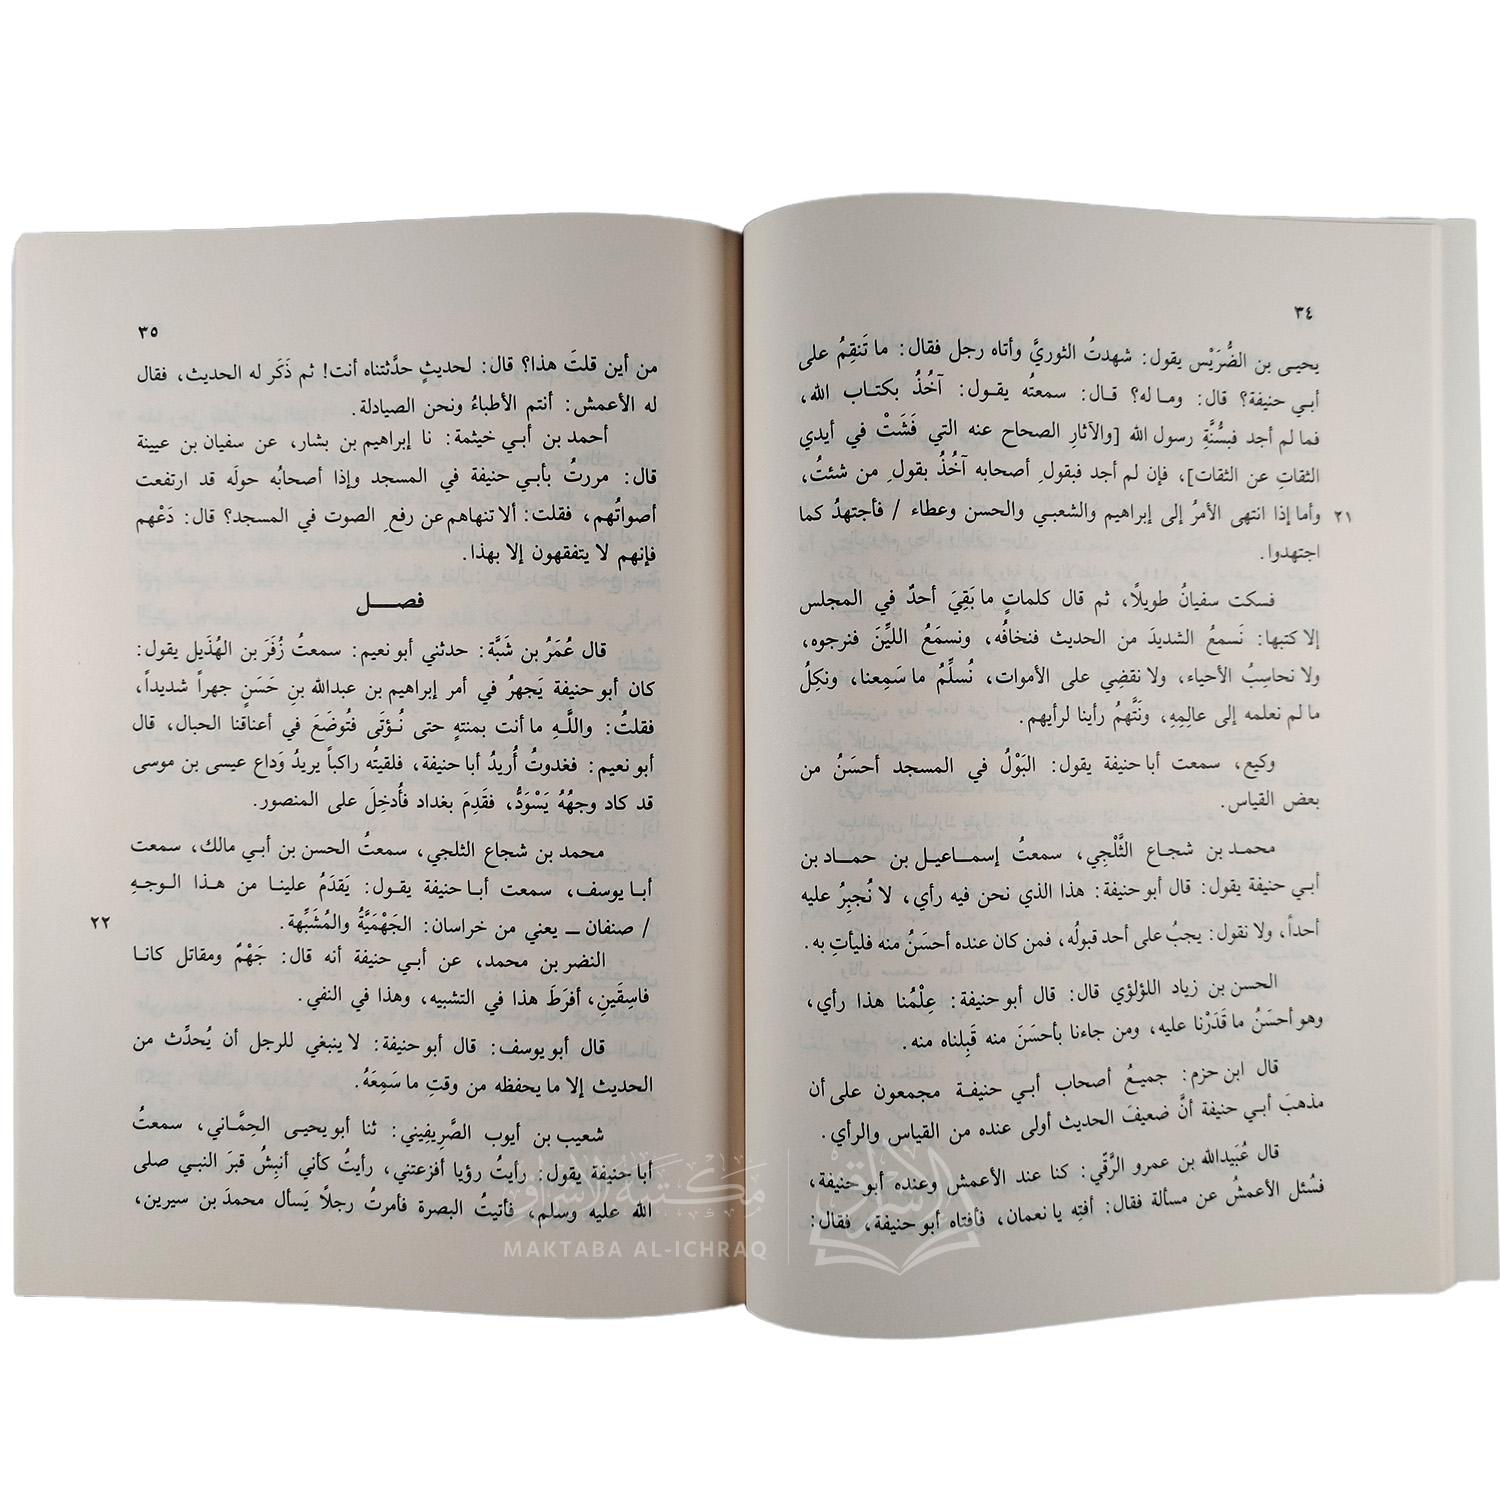 ٣٤
يحيى بن الضُّرَيْس يقول: شهدتُ الثوريَّ وأتاه رجل فقال: ما تَنقِمُ على
أبي حنيفة؟ قال: وما له؟ قال: سمعتُه يقول: آخُذُ بكتاب الله،
فما لم أجد فبسُنَّةِ رسول الله [والآثارِ الصحاح عنه التي فَشَتْ في أيدي
الثقاتِ عن الثقات]، فإن لم أجد فبقولِ أصحابه آخُذُ بقولِ من شئتُ،
وأما إذا انتهى الأمرُ إلى إبراهيم والشعبي والحسن وعطاء / فأجتهدُ كما ٢١
اجتهدوا.
فسكت سفيانُ طويلًا، ثم قال كلماتٍ ما بَقِيَ أحدٌ في المجلس
إلا كتبها: نَسمعُ الشديدَ من الحديث فنخافُه، ونسمَعُ الليِّنَ فنرجوه،
ولا نحاسِبُ الأحياء، ولا نقضِي على الأموات، نُسلِّمُ ما سَمِعنا، ونكِلُ
ما لم نعلمه إلى عالِمِهِ، ونَتَّهمُ رأينا لرأيهم.
وكيع، سمعت أبا حنيفة يقول: البَوْلُ في المسجد أحسَنُ من
بعض القياس.
محمد بن شجاع الثَّلْجِي، سمعتُ إسماعيل بن حماد بن
أبي حنيفة يقول: قال أبو حنيفة: هذا الذي نحن فيه رأي، لا نُجبِرُ عليه
أحداً، ولا نقول: يجبُ على أحد قبولُه، فمن كان عنده أحسَنُ منه فليأتِ به.
الحسن بن زياد اللؤلؤي قال: قال أبو حنيفة: عِلْمُنا هذا رأي،
وهو أحسَنُ ما قَدَرْنا عليه، ومن جاءنا بأحسَنَ منه قَبِلناه منه.
قال ابن حزم: جميعُ أصحاب أبي حنيفة مجمعون على أن
مذهبَ أبي حنيفة أنَّ ضعيفَ الحديث أولى عنده من القياس والرأي.
قال عُبَيدالله بن عمرو الرَّقّي: كنا عند الأعمش وعنده أبو حنيفة،
فسُئل الأعمشُ عن مسألة فقال: أفتِه يا نعمان، فأفتاه أبو حنيفة، فقال:
٣٥
من أين قلتَ هذا؟ قال: لحديثٍ حدَّثتناه أنت! ثم ذَكَر له الحديث، فقال
له الأعمش: أنتم الأطباءُ ونحن الصيادلة.
أحمد بن أبي خيثمة: نا إبراهيم بن بشار، عن سفيان بن عيينة
قال: مررتُ بأبي حنيفة في المسجد وإذا أصحابُه حولَه قد ارتفعت
أصواتُهم، فقلت: ألا تنهاهم عن رفعِ الصوت في المسجد؟ قال: دَعْهم
فإنهم لا يتفقهون إلا بهذا.
فصـــل
قال عُمَرُ بن شَبَّة: حدثني أبو نعيم: سمعتُ زُفَرَ بن الهُذَيل يقول:
كان أبو حنيفة يَجهرُ في أمر إبراهيم بن عبدالله بنِ حَسَنٍ جهراً شديداً،
فقلتُ: واللَّهِ ما أنت بمنتهٍ حتى نُؤتَى فتُوضَعَ في أعناقنا الحبال، قال
أبو نعيم: فغدوتُ أُريدُ أبا حنيفة، فلقيتُه راكباً يريدُ وَداع عيسى بن موسى
قد كاد وجهُهُ يَسْوَدُّ، فقَدِمَ بغداد فأُدخِلَ على المنصور.
محمد بن شجاع الثلجي، سمعتُ الحسن بن أبي مالك، سمعت
أبا يوسف، سمعت أبا حنيفة يقول: يَقدَمُ علينا من هذا الوجهِ
/ صنفان ــ يعني من خراسان: الجَهْمَيَّةُ والمُشَبِّهة. ٢٢
النضر بن محمد، عن أبي حنيفة أنه قال: جَهْمٌ ومقاتل كانا
فاسِقَينِ، أفرَطَ هذا في التشبيه، وهذا في النفي.
قال أبو يوسف: قال أبو حنيفة: لا ينبغي للرجل أن يُحدِّث من
الحديث إلا ما يحفظه من وقتِ ما سَمِعَهُ.
شعيب بن أيوب الصَّرِيفِيني: ثنا أبو يحيى الحِمَّاني، سمعتُ
أبا حنيفة يقول: رأيتُ رؤيا أفزعتني، رأيتُ كأني أنبِشُ قبرَ النبي صلى
الله عليه وسلم، فأتيتُ البصرة فأمرتُ رجلاً يَسأل محمدَ بن سيرين،
مكتبة الإشراق
MAKTABA AL-ICHRAQ
الإشراق